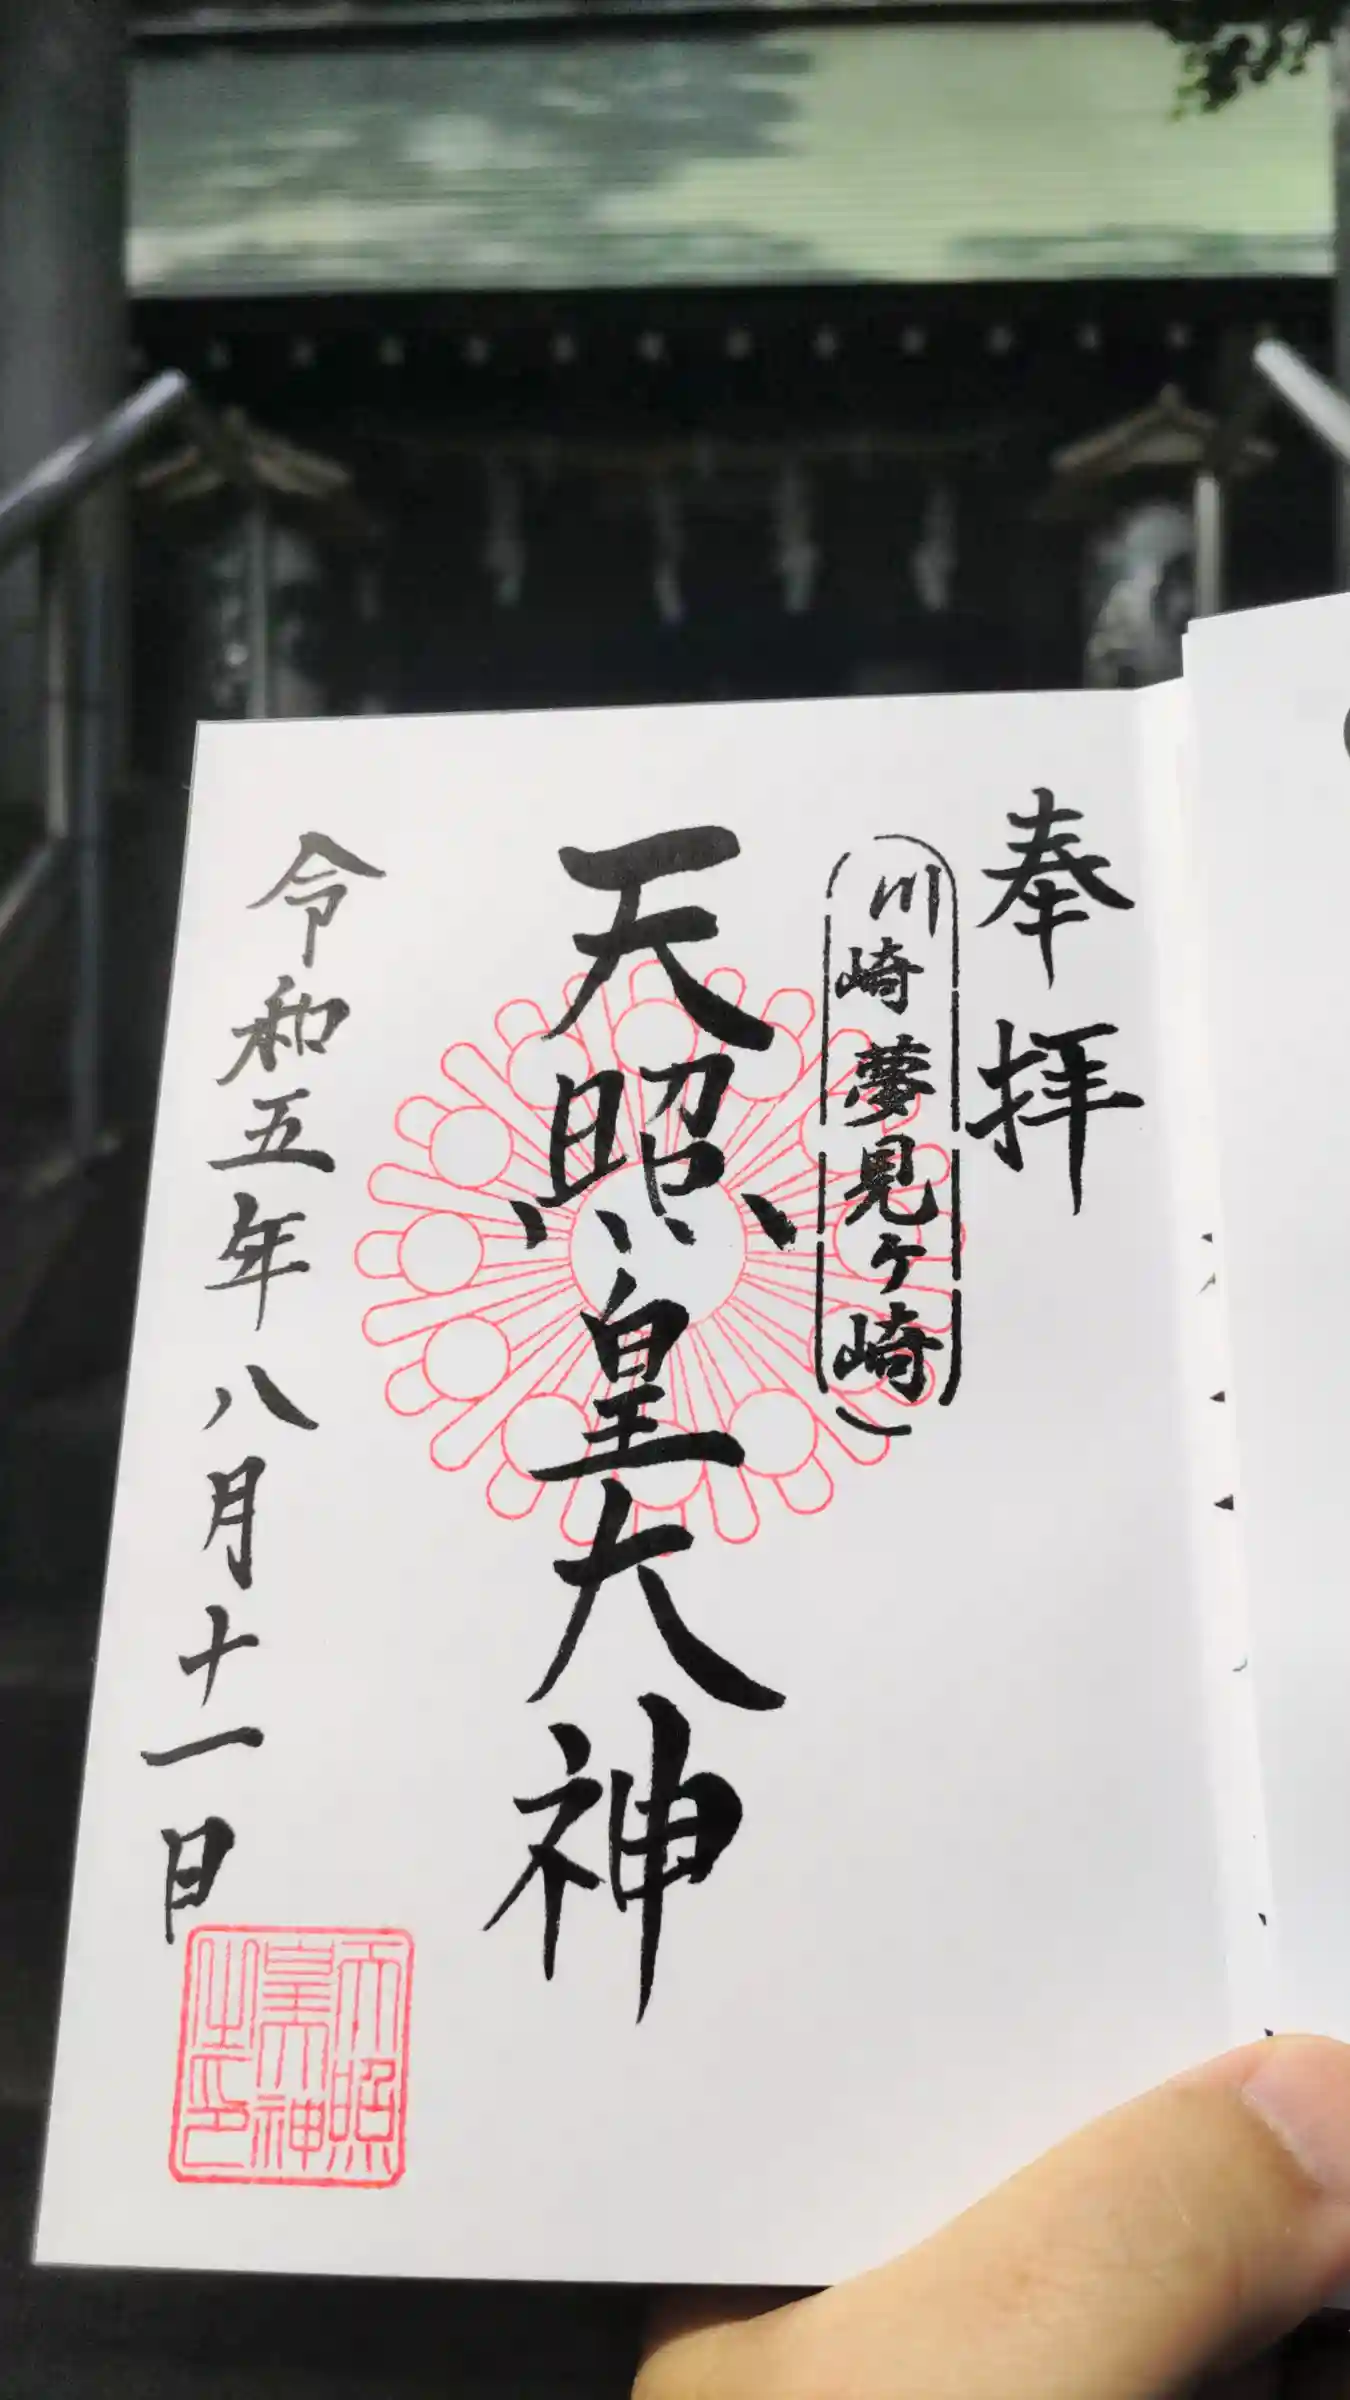 奉拝
川崎夢見ヶ崎
天照皇大神
令和五年八月十一日
天照
皇大神
之印